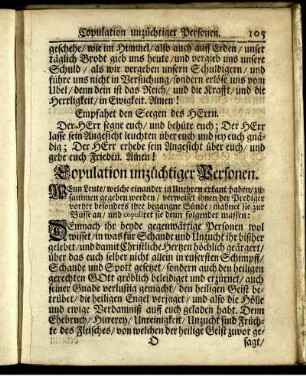 Copulation unzüchtiger Personen. 105
geschehe/ wie im Himmel/ also auch auff Erden/ unser
täglich Brodt gieb uns heute/ und vergieb uns unsere
Schuld/ als wir vergeben unsern Schuldigern/ und
führe uns nicht in Versuchung/ sondern erlöse uns vom
Ubel/ denn dein ist das Reich/ und die Krafft/ und die
Herrligkeit/ in Ewigkeit. Amen!
Empfahet den Seegen des HErrn.
Der HErr segne euch/ und behüte euch; Der HErr
lasse sein Angesicht leuchten über euch und sey euch gnä-
dig; Der HErr erhebe sein Angesicht über euch/ und
gebe euch Frieden. Amen!
Copulation unzüchtiger Personen.
Wenn Leute/ welche einander in Unehren erkant haben/ zu-
sammen gegeben werden/ verweiset ihnen der Prediger
vorher besonders ihre begangne Sünde/ mahnet sie zur
Busse an/ und copuliret sie denn folgender massen:
Demnach ihr beyde gegenwärtige Personen wol
wisset/ in was für Schande und Unzucht ihr bißher
gelebet/ und damit Christliche Hertzen höchlich geärgert/
über das euch selber nicht allein in eusersten Schimpff/
Schande und Spott gesetzet/ sondern auch den heiligen
gerechten GOtt gröblich beleidiget und erzürnet/ auch
seiner Gnade verlustig gemacht/ den heiligen Geist be-
trübet/ die heiligen Engel verjaget/ und also die Hölle
und ewige Verdamniß auff euch geladen habt. Denn
Ehebruch/ Hurerey/ Unreinigkeit/ Unzucht sind Früch-
te des Fleisches/ von welchen der heilige Geist zuvor ge-
O sagt/